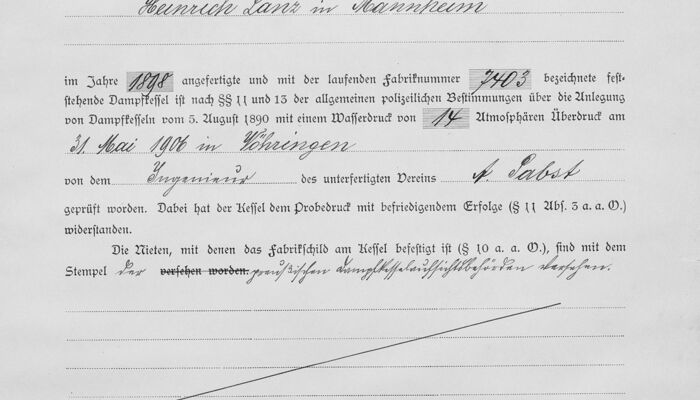 Heinrich Lanz in Mannheim
im Jahre 1898 angefertigte und mit der laufenden Fabriknummer 7403 bezeichnete fest-
stehende Dampfkessel ist nach §§ 11 und 13 der allgemeinen polizeilichen Bestimmungen über die Anlegung
von Dampfkesseln vom 5. August 1890 mit einem Wasserdruck von 14 Atmosphären Überdruck am
31. Mai 1906 in Vöhringen
von dem Ingenieur des unterfertigten Vereins A. Pabst
geprüft worden. Dabei hat der Kessel dem Probedruck mit befriedigendem Erfolge (§ 11 Abs. 3 a. a. O.)
widerstanden.
Die Nieten, mit denen das Fabrikschild am Kessel befestigt ist (§ 10 a. a. O.), sind mit dem
Stempel der versehen worden. preußischen Dampfkesselaufsichtsbehörden versehen.